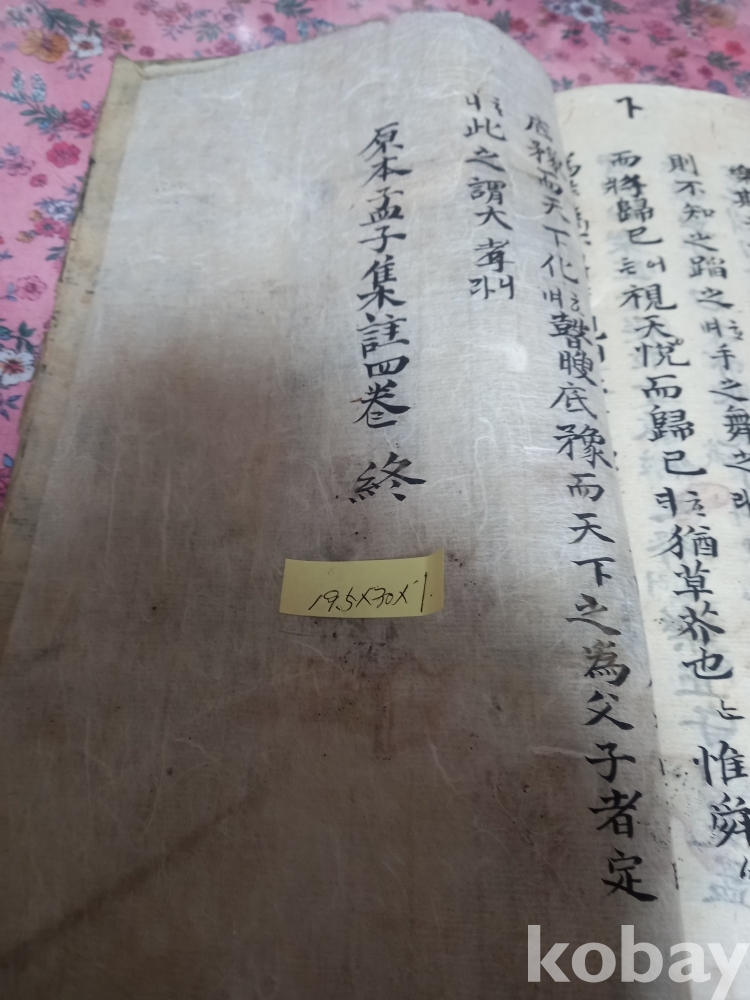 則不知之蹈之ᄒᆞ며手之舞之
而將歸已視天悅而歸己猶草芥也는惟舜
底豫而天下化ᄒᆞ며瞽瞍底豫而天下之為父子者定
ᄒᆞ니此之謂大孝니라
原本孟子集註四卷 終
19.5X30X1.
kobay